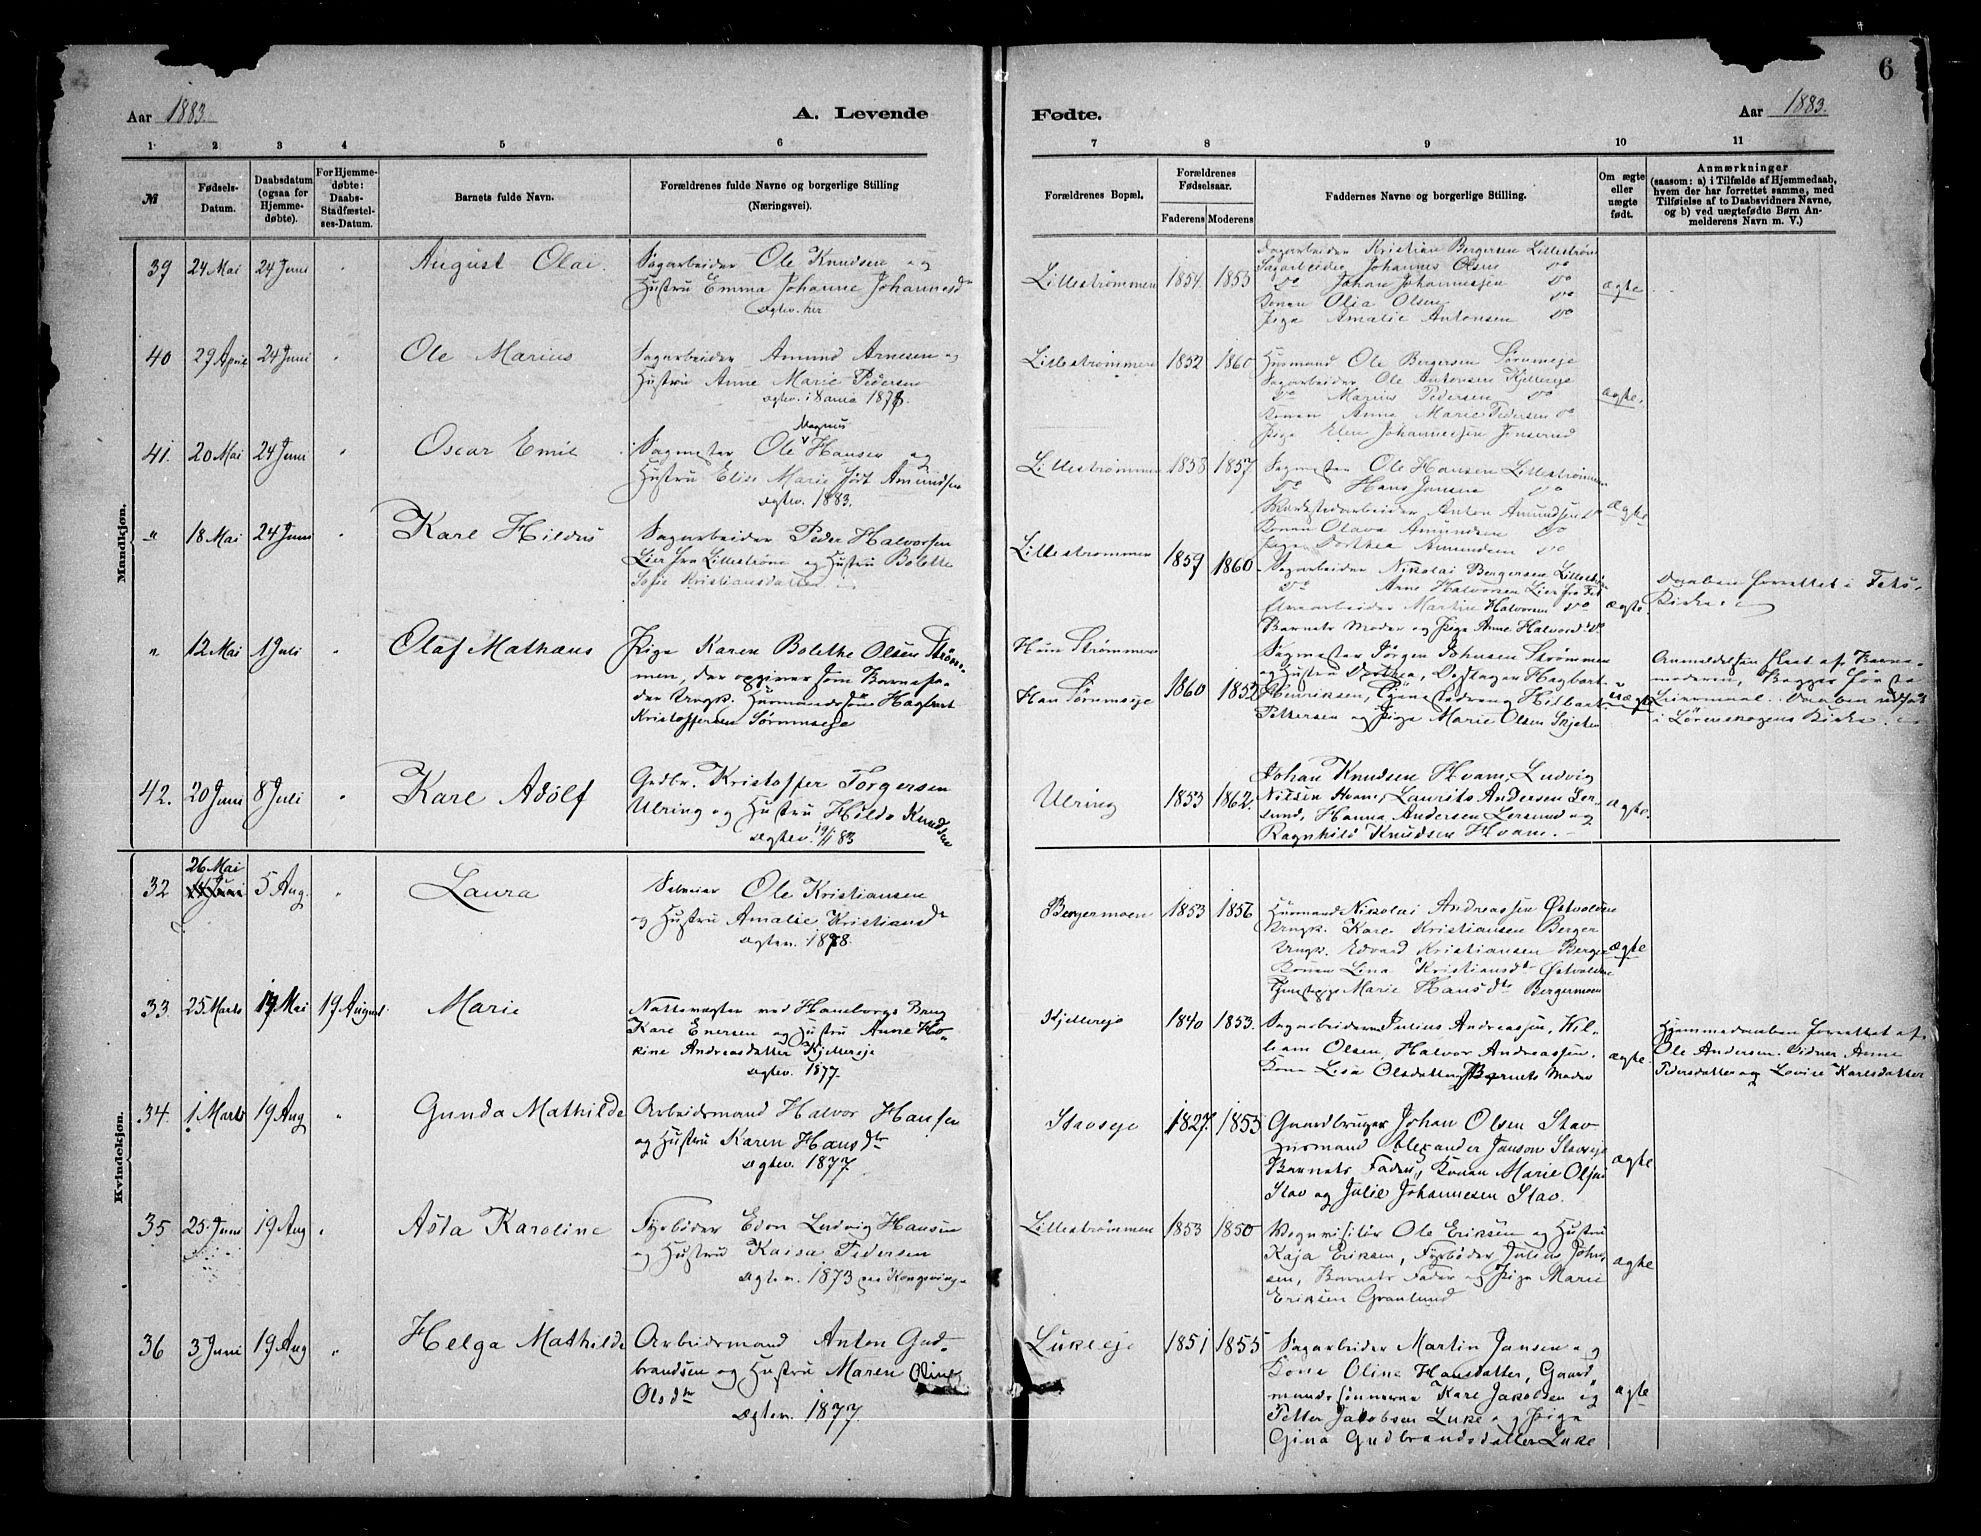 6
Aar 1883. A. Levende Fødte. Aar 1883.
1 2 3 4 5 6 7 8 9 10 11
№
Fødsels-
Datum.
Daabsdatum
(ogsaa for
Hjemme-
døbte).
For Hjemme-
døbte:
Daabs-
Stadfæstel-
ses-Datum.
Barnets fulde Navn.
Forældrenes fulde Navne og borgerlige Stilling
(Næringsvei).
Forældrenes Bopæl.
Forældrenes
Fødselsaar.
Faderens Moderens
Faddernes Navne og borgerlige Stilling.
Om ægte
eller
uægte
født.
Anmærkninger
(saasom: a) i Tilfælde af Hjemmedaab,
hvem der har forrettet samme, med
Tilføielse af to Daabsvidners Navne,
og b) ved uægtefødte Børn An-
melderens Navn m. V.)
Mandkjøn.
39 24 Mai 24 Juni " August Olai.
Sagarbeider Ole Knudsen og
Hustru Emma Johanne Johannesdr
Ægtev. her
Lillestrømmen 1854. 1853
Sagarbeider Kristian Bergersen Lillestrøm
Sagarbeider Johannes Olsen Do
Do Johan Johannessen Do
Konen Olia Olsen Do
Pige Amalie Antonsen Do
ægte
40 29 April 24 Juni " Ole Marius
Sagarbeider Amund Arnesen og
Hustru Anne Marie Pedersen
Ægtev. i 1878.
Lillestrømmen 1852 1860
Husmand Ole Bergersen Sørumseje
Sagarbeider Ole Antonsen Kjellereje
Do Marius Pedersen Do
Konen Anna Marie Pedersen Do
Pige Elen Johannessen
ægte.
41. 20 Mai 24 Juni " Oscar Emil
Magnus
Sagmester Ole Hansen og
Hustru Elise Marie født Amundsen
Ægtev. 1883.
Lillestrømmen 1858 1857
Sagmester Ole Hansen Lillestrømmen
Do Hans Jansen Do
Værkstedarbeider Anton Amundsen Do
Konen Olava Amundsen Do
Pige Dorthea Amundsen Do
ægte
" 18 Mai 24 Juni " Karl Hildus
Sagarbeider Peder Halvorsen
Lier fra Lillestrøm og Hustru Bolette
Sofie Kristiansdatter
Lillestrømmen 1859 1860
Sagarbeider Nikolai Bergersen Lillestrøm
Do Arne Halvorsen Lier fra Fet
Elvearbeider Martin Halvorsen Do
Barnets Moder og Pige Anne Halvorsd. Do
ægte.
Daaben forrettet i Fets
Kirke.
" 12 Mai 1 Juli " Olaf Mathæus
Pige Karen Bolethe Olsen Strøm-
men, der opgiver som Barnefa-
der Ungk. Husmandssøn Hagbart
Kristoffersen Sørumseje
Hun Strømmen
Han Sørumseje 1860 1852
Sagmester Jørgen Johnsen Strømmen
og Hustru Dorthea, Hagbart
Henriksen, Hilbart
Pettersen og Pige Marie Olsen Skjetten
uægte
Anmeldelsen skeet af Barne-
moderen, Begges 1ste
Leiermaal. Daaben udført
i Lørenskogens Kirke.
42. 20 Juni 8 Juli " Karl Adolf
Grdbr. Kristoffer Torgersen
Ulring og Hustru Hilda Knudsen
Ægtev. 83
Ulring 1853 1862.
Johan Knudsen Hvam, Ludvig
Nilsen Hvam, Laurits Andersen Ler-
sund, Hanna Andersen Lersund og
Ragnhild Knudsen Hvam.
ægte.
Kvindekjøn.
32 26 Mai 5 Aug. " Laura
Selveier Ole Kristiansen
og Hustru Amalie Kristiansdr
Ægtev. 1878.
Bergermoen 1853 1856
Husmand Nikolai Andreassen Østvolden
Ungk. Karl Kristiansen Berger
Ungk. Edvard Kristiansen Berger
Konen Lina Kristiansdr Østvolden
Tjenestepige Marie Hansdtr Bergermoen
ægte
33. 25 Marts 17 Mai 19 August Marie
Nattevægter ved Haneborgs Brug
Karl Enersen og Hustru Anne Ho-
kine Andreasdatter Kjellereje
Ægtev. 1877.
Kjellereje 1840 1853.
Sagarbeiderne Julius Andreassen, Vil-
liam Olsen, Halvor Andreassen.
Kone Lisa Olsdatter, Barnets Moder
ægte.
Hjemmedaaben forrettet af
Ole Andersen. Vidner Anne
Pedersdatter og Lovise Karlsdatter
34. 1 Marts 19 Aug " Gunda Mathilde
Arbeidsmand Halvor Hansen
og Hustru Karen Hansdtr
Ægtev. 1877.
Stavseje 1827. 1853
Gaardbruger Johan Olsen Stav
Husmand Alexander Janson Stavseje
Barnets Fader, Konen Marie Olsen
Stav og Julie Johannesen Stav.
ægte
35 25. Juni 19 Aug " Asta Karoline
Fyrbøder Edon Ludvig Hansen
og Hustru Kaisa Pedersen
Ægtev. 1873 paa Kongsvinger
Lillestrømmen 1853 1850
Vognvisitør Ole Eriksen og Hustru
Kaja Eriksen, Fyrbøder Julius Johan-
sen, Barnets Fader og Pige Marie
Eriksen Granlund
ægte
36 3 Juni 19 Aug " Helga Mathilde
Arbeidsmand Anton Gud-
brandsen og Hustru Maren Oline
Olsdtr
Ægtev. 1877.
Lukeeje 1851 1855
Sagarbeider Martin Jansen og
Kone Oline Hansdatter, Gaard-
mandssønnerne Karl Jakobsen og
Petter Jakobsen Luke og Pige
Gina Gudbrandsdatter Luke
ægte